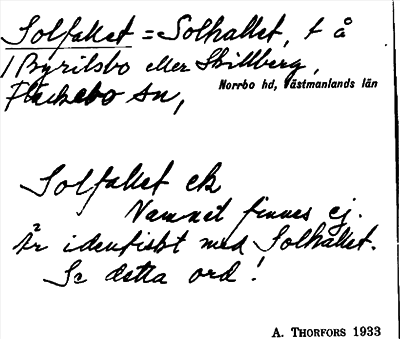 Solfallet = Solhallet, t å
/ Byrilsbo eller Skillberg,
Fläckebo sn, Norrbo hd, Västmanlands län
Solfallet ek
Namnet finnes ej.
Är identiskt med Solhallet.
Se detta ord!
A. THORFORS 1933